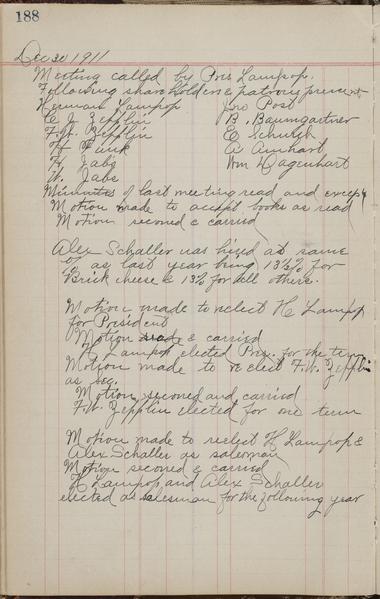 188
Dec 30 1911
Meeting called by Pres Lampop.
Following share holders & patrons present
Herman Lampop Jno Post
C J Zepplin B. Baumgartner
F.W. Zepplin E Schultz
H Funk A Amhart
H Jabs Wm Dagenhart
W. Jabs
Minnutes of last meeting read and except
Motion made to accept books as read
Motion seconed & carried
Alex Schaller was hired at same
% as last year being 13½% for
Brick cheese & 13% for all others.
Motion made to relect H Lampop
for President
Motion made & carried
H Lampop elected Pres. for the term
Motion made to re elect F.W. Zepplin
as Sec.
Motion seconed and carried
F.W. Zepplin elected for one term
Motion made to reelect H Lampop &
Alex Schaller as salesman
Motion seconed & carried
H Lampop and Alex Schaller
elected as salesman for the following year